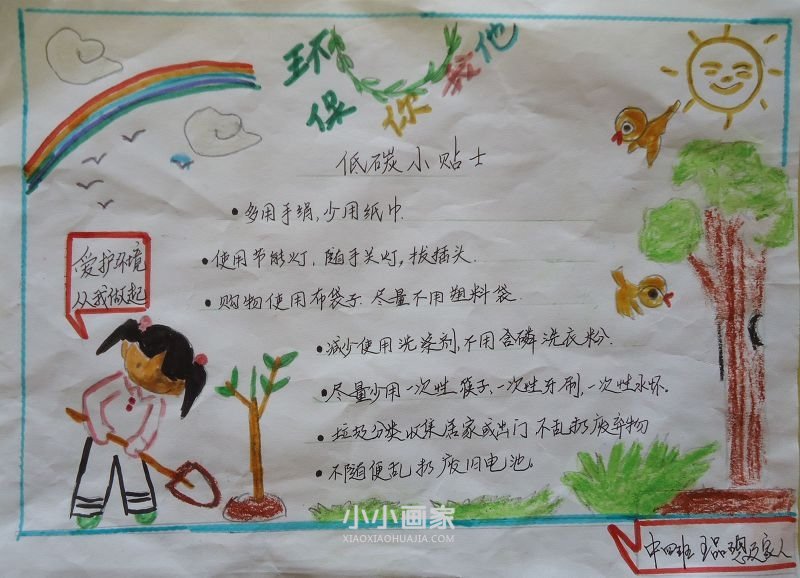 环保 你我他
低碳小贴士
•多用手绢,少用纸巾.
•使用节能灯,随手关灯,拔插头.
•购物使用布袋子.尽量不用塑料袋.
•减少使用洗涤剂,不用含磷洗衣粉.
•尽量少用一次性筷子、一次性牙刷,一次性水杯.
•垃圾分类收集居家或出门不乱扔废弃物
•不随便乱扔废旧电池。
爱护环境
从我做起
小小画家
XIAOXIAOHUAJIA.COM
中四班
家人